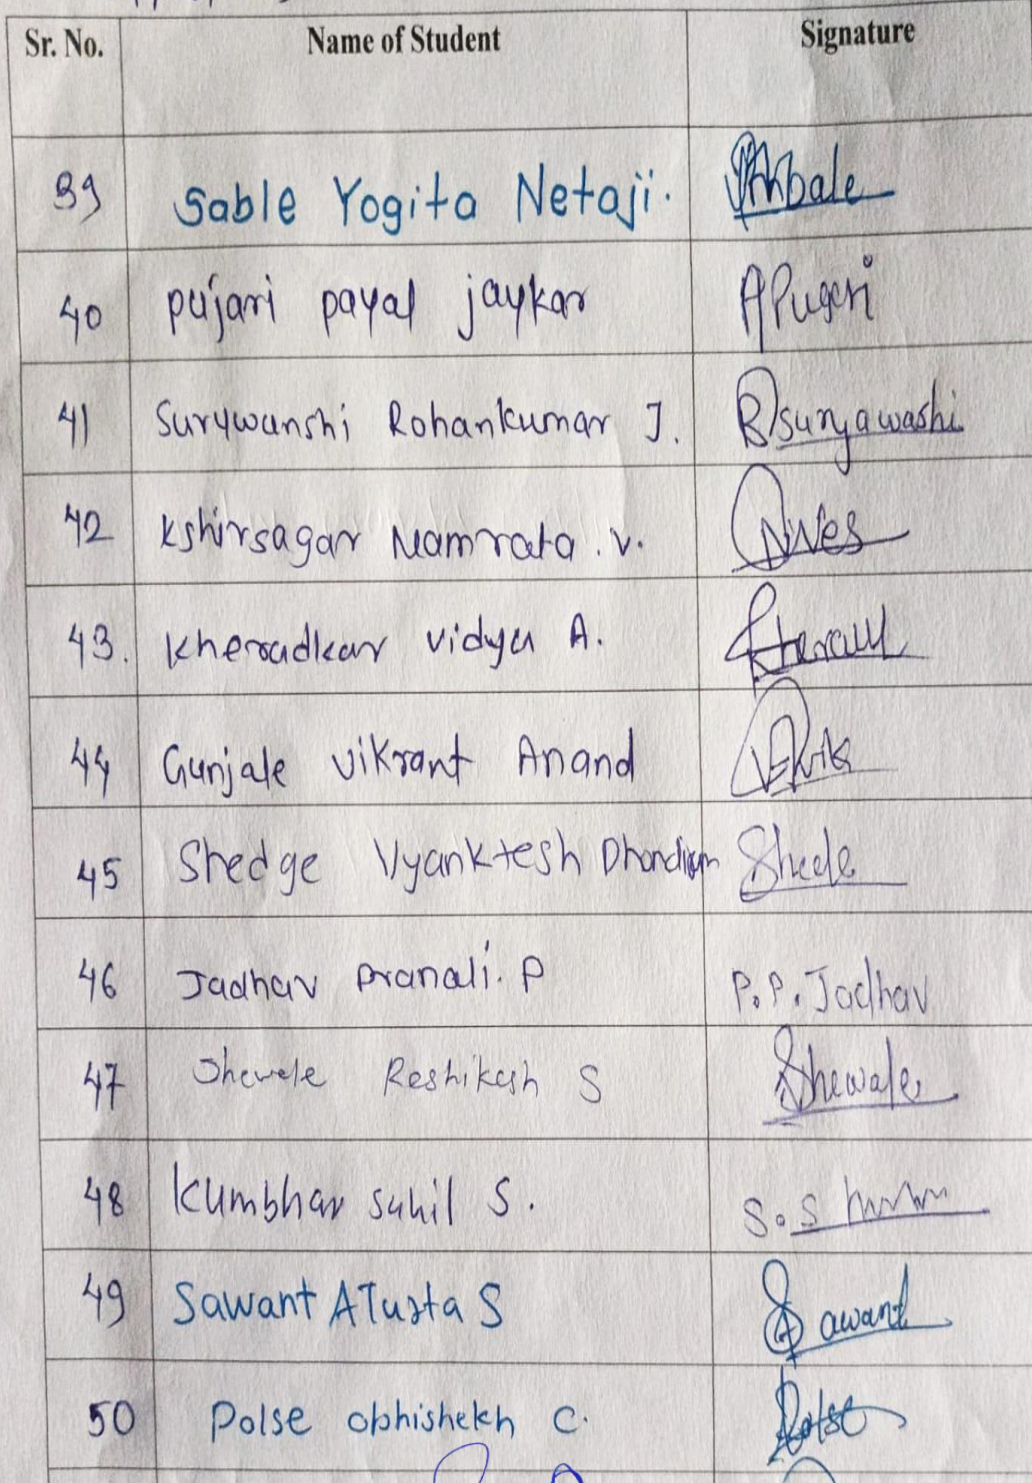 Sr. No. Name of Student Signature
39 Sable Yogita Netaji.
40 pujari payal jaykar APujari
41 Surywanshi Rohankumar J. RJsuryawashi
42 Kshirsagar Namrata .V.
43. Kheradkar vidya A.
44 Gunjale vikrant Anand
45 Shedge Vyanktesh Dhondiram
46 Jadhav Pranali. P P.P. Jadhav
47 Shevele Reshikesh S Shewale
48 Kumbhar Sahil S. S.S
49 Sawant S Sawant
50 Polse abhishekh C. Polse